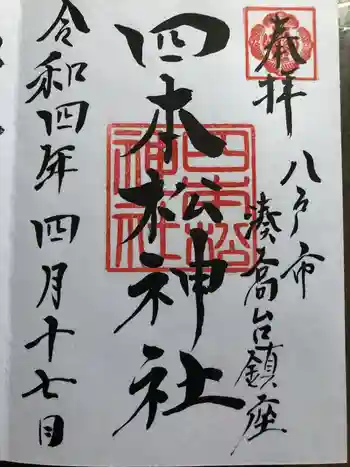 奉拝
八戸市
湊高台鎮座
四本松神社
令和四年四月十七日